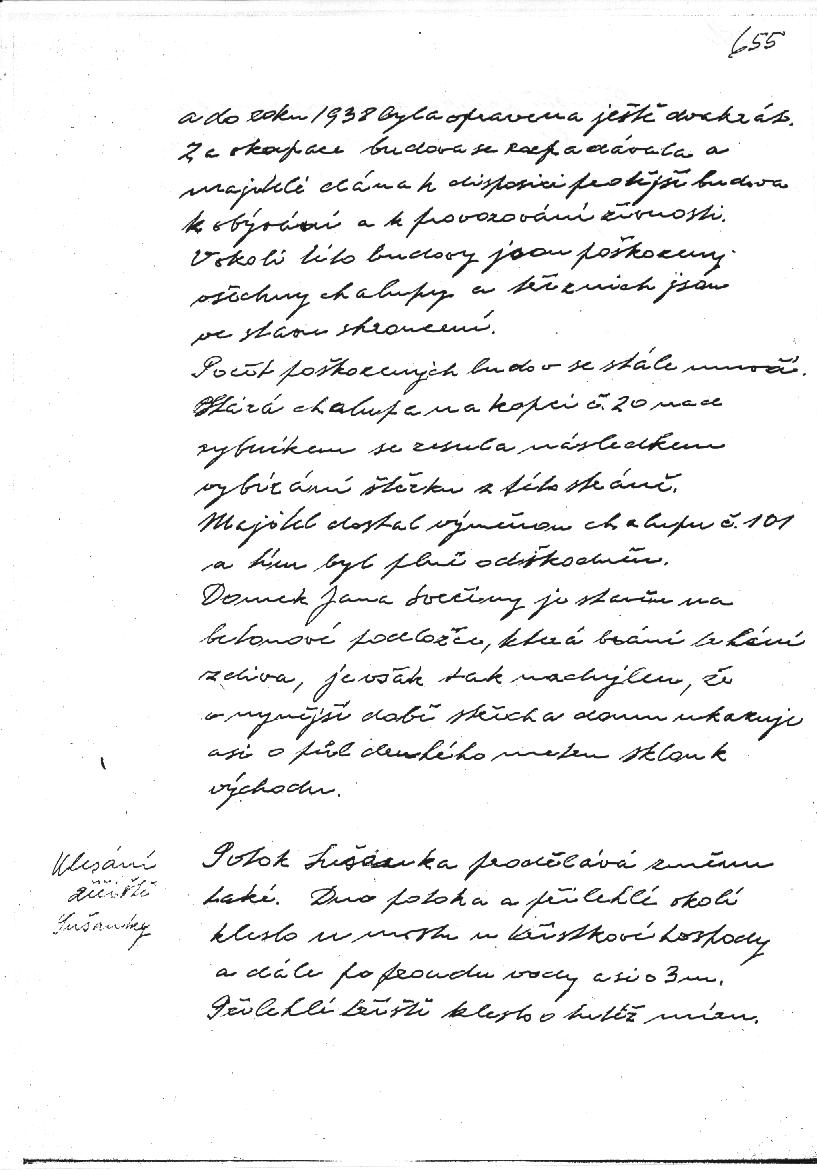 655
a do roku 1938 byla opravena ještě dvakrát.
Za okupace budova se rozpadávala a
majiteli dána k disposici protější budova
k obývání a k provozování živnosti.
V okolí této budovy jsou poškozeny
všechny chalupy a tři z nich jsou
ve stavu skroucení.
Počet poškozených budov se stále množí.
Stará chalupa na kopci č. 20 nad
rybníkem se zesula následkem
vybírání štěrku z této stráně.
Majitel dostal výměnou chalupu č. 101
a tím byl plně odškodněn.
Domek Jana Svěčiny je stavěn na
betonové podložce, která brání trhání
zdiva, je však tak nachýlen, že
v nynější době střecha domu ukazuje
asi o půl druhého metru sklon k
východu.
Klesání
řečiště
Sušanky
Potok Sušanka prodělává změnu
také. Dno potoka a přilehlé okolí
kleslo u mostu u Křístkové hospody
a dále po proudu vody asi o 3 m.
Přilehlé hřiště kleslo o tutéž míru.